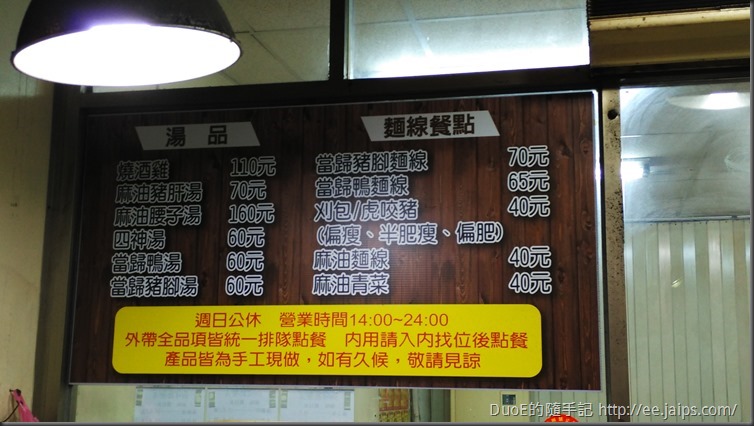 湯 品
燒酒雞 110元
麻油豬肝湯 70元
麻油腰子湯 160元
四神湯 60元
當歸鴨湯 60元
當歸豬腳湯 60元
麵線餐點
當歸豬腳麵線 70元
當歸鴨麵線 65元
刈包/虎咬豬 40元
(偏瘦、半肥瘦、偏肥)
麻油麵線 40元
麻油青菜 40元
週日公休 營業時間14:00~24:00
外帶全品項皆統一排隊點餐 內用請入內找位後點餐
產品皆為手工現做，如有久候，敬請見諒
DuoE的隨手記 http://ee.jaips.com/